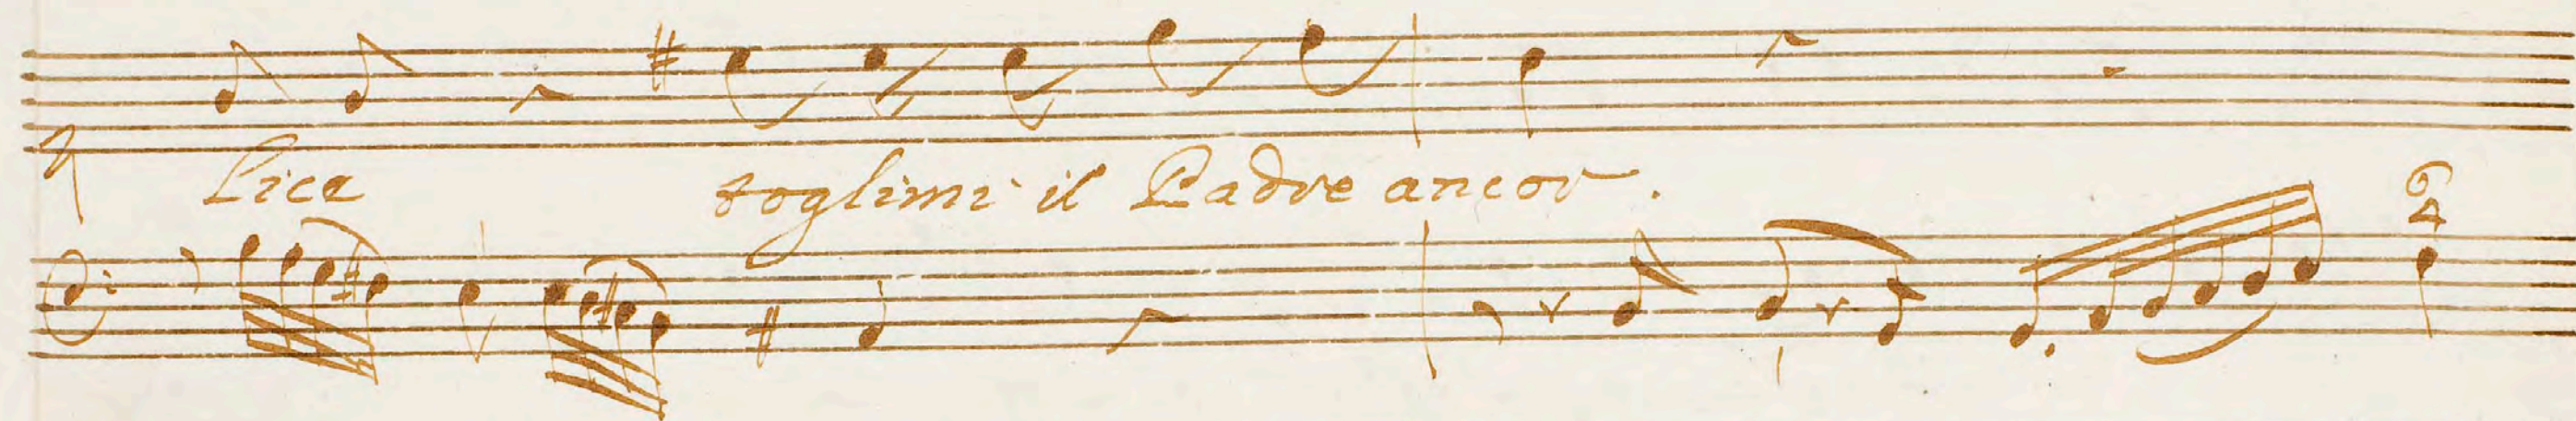 lice toglimi il Padre ancor.
6
4